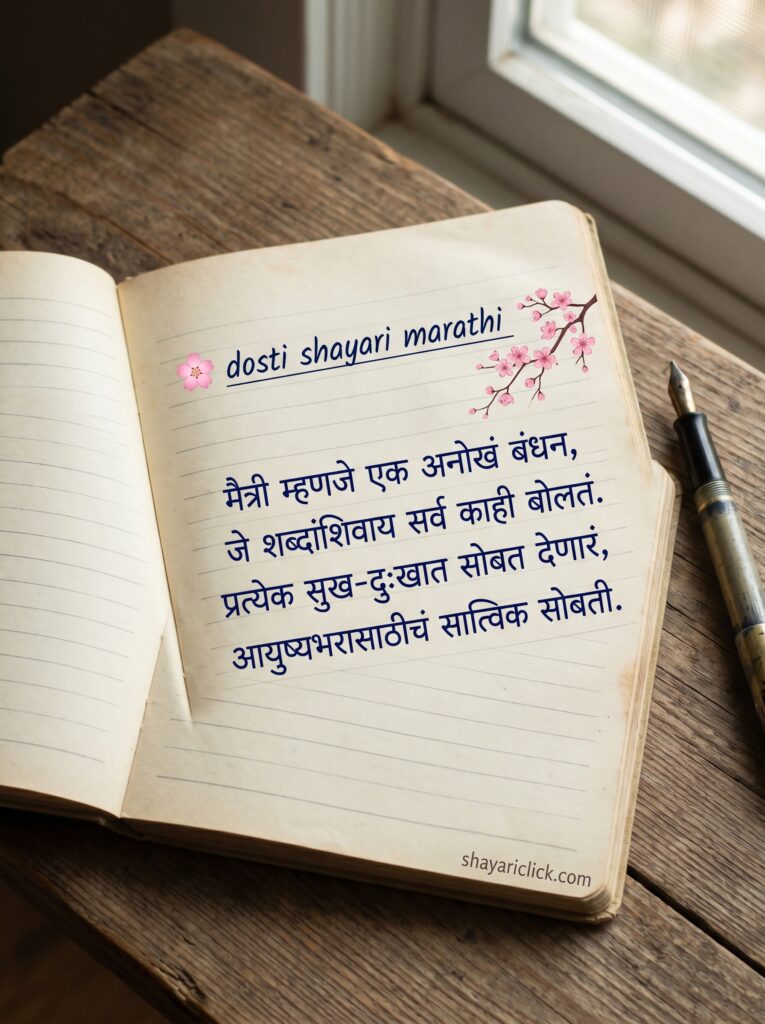 dosti shayari marathi
मैत्री म्हणजे एक अनोखं बंधन,
जे शब्दांशिवाय सर्व काही बोलतं.
प्रत्येक सुख-दुःखात सोबत देणारं,
आयुष्यभरासाठीचं सात्विक सोबती.
shayariclick.com